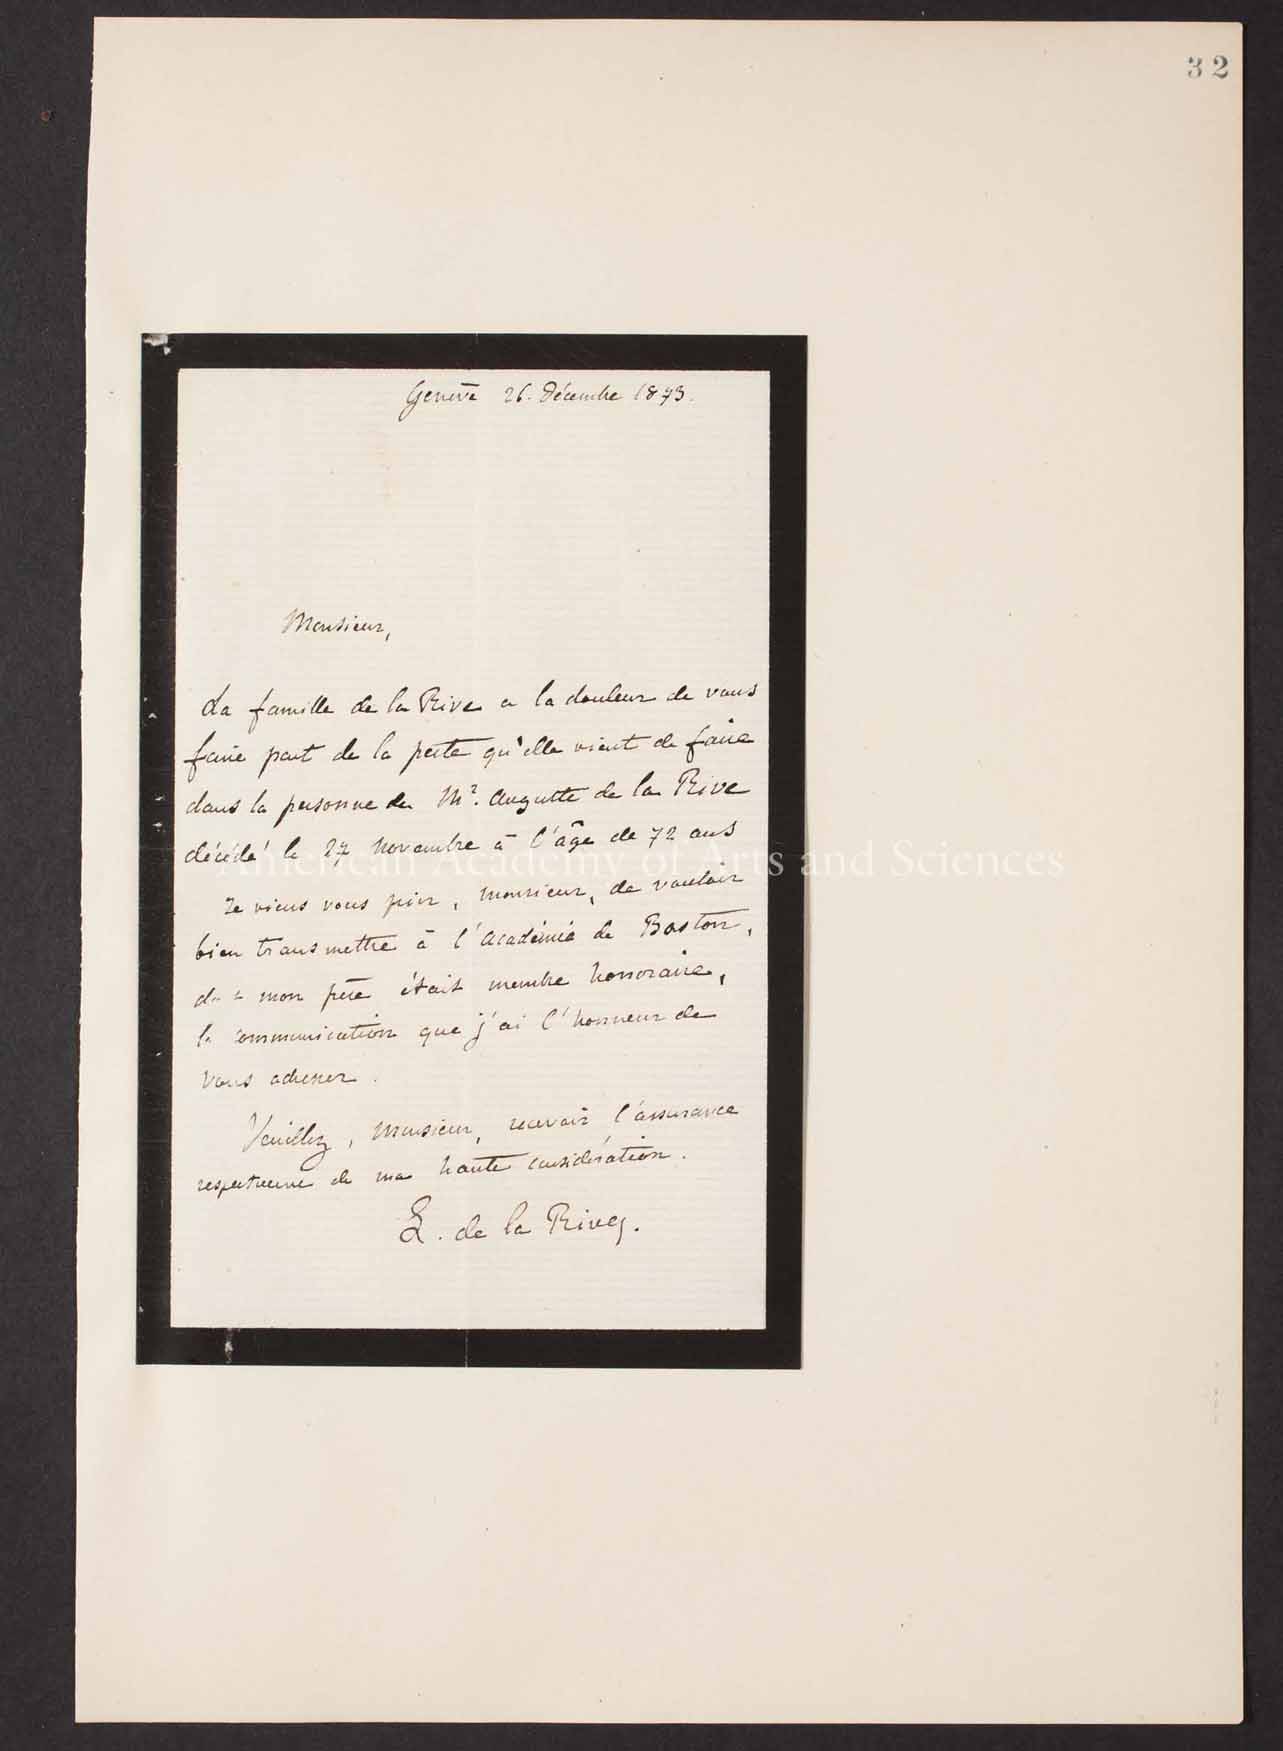 32
Genève 26. Décembre 1873.
Monsieur,
La famille de la Rive a la douleur de vous
faire part de la perte qu'elle vient de faire
dans la personne de Mr. Auguste de la Rive
décédé le 27 novembre à l'âge de 72 ans
American Academy of Arts and Sciences
Je viens vous prier, Monsieur, de vouloir
bien transmettre à l'Académie de Boston,
mon père était membre honoraire,
la communication que j'ai l'honneur de
vous adresser.
Veuillez, Monsieur, recevoir l'assurance
respectueuse de ma haute considération.
L. de la Rive.